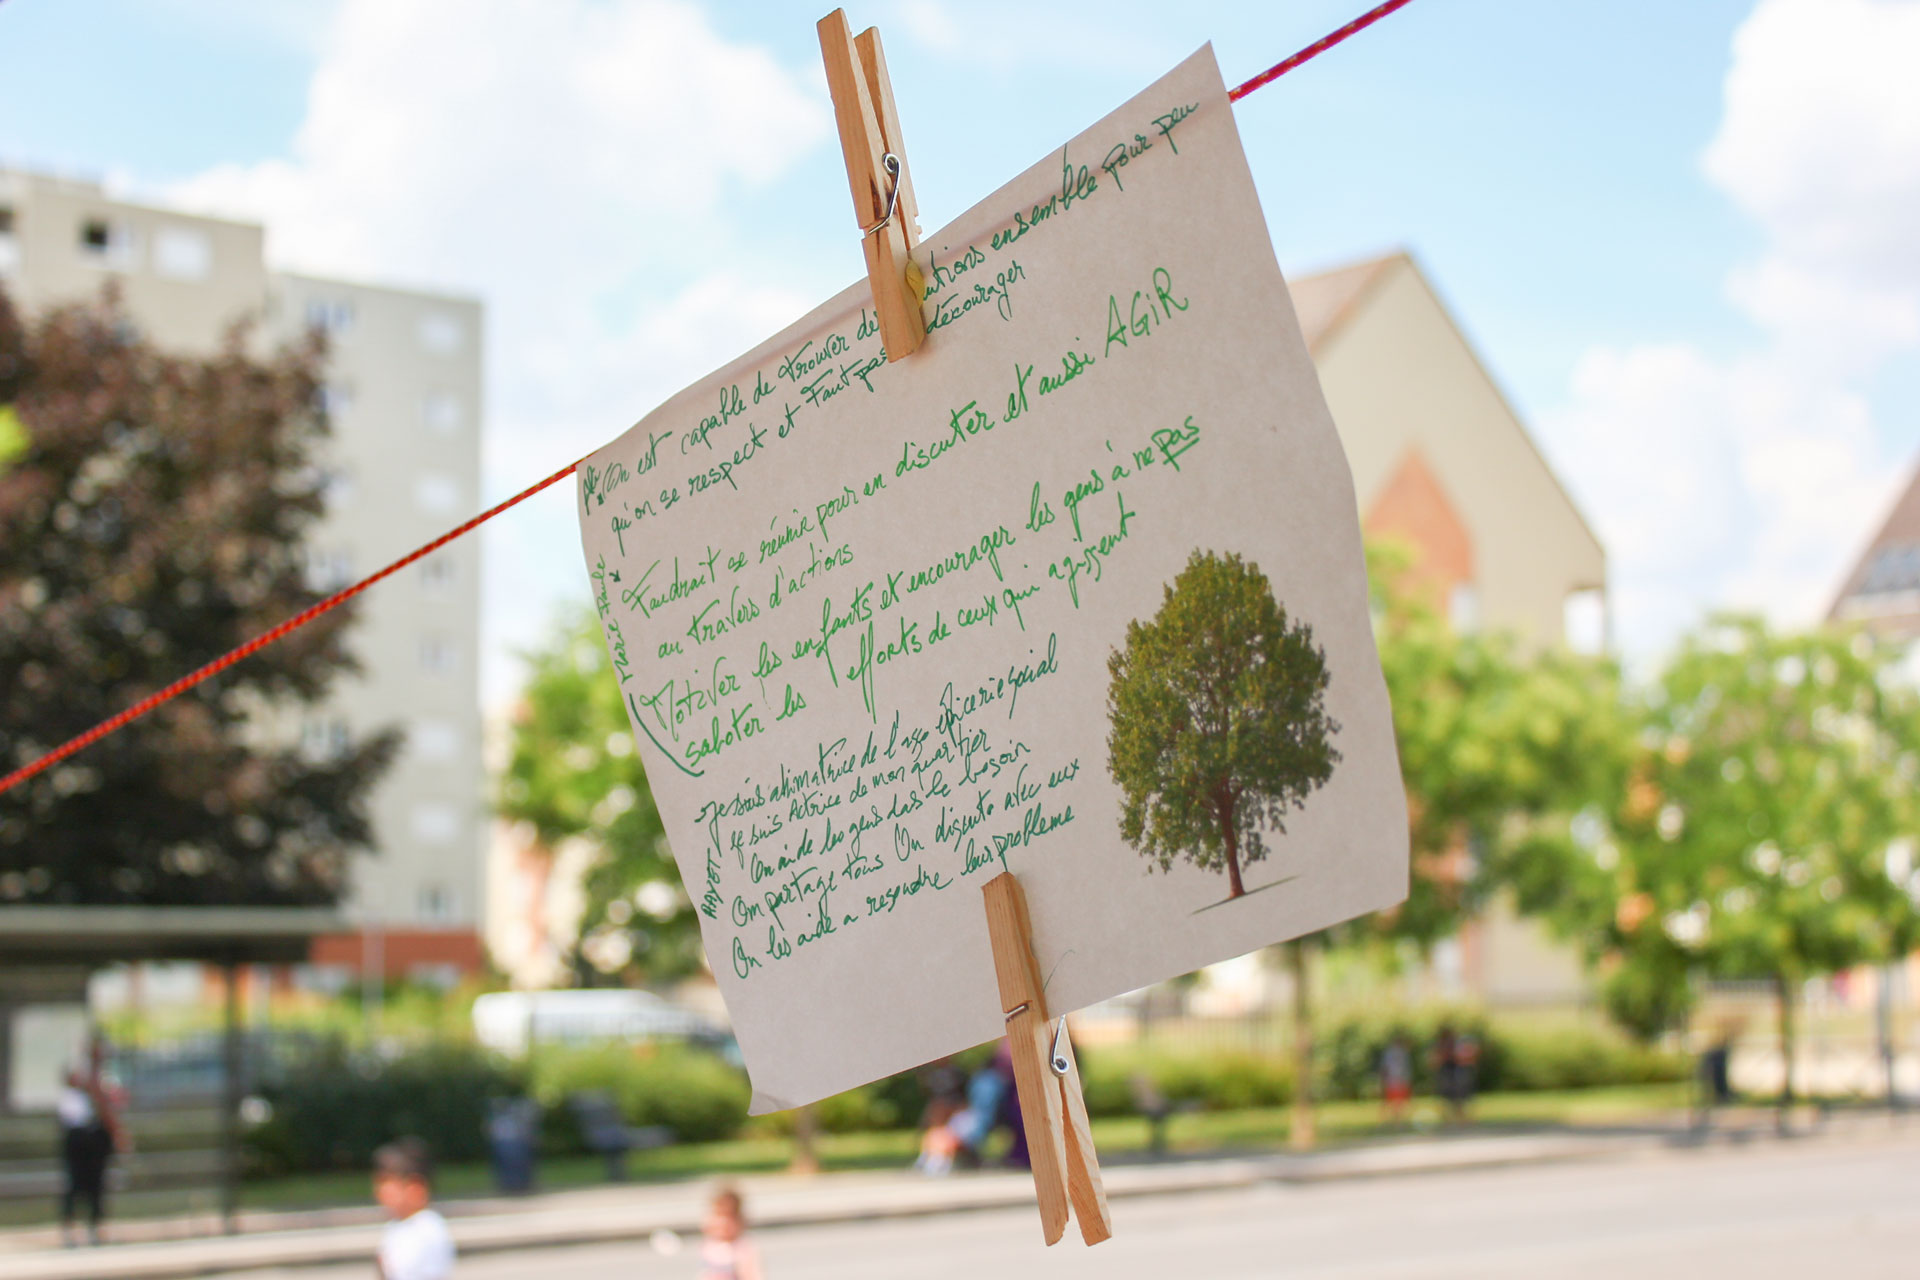 On est capable de trouver de utions ensemble pour peu
qu'on se respect et Faut pas décourager
Faudrait se réunir pour en discuter et aussi AGiR
au travers d'actions
Motiver les enfants et encourager les gens à ne pas
saboter les efforts de ceux qui agissent
Marie Paule
je suis animatrice de l' épicerie social
je suis Actrice de mon quartier
On aide les gens das le besoin
On partage tous On discute avec eux
On les aide a resoudre leur probleme